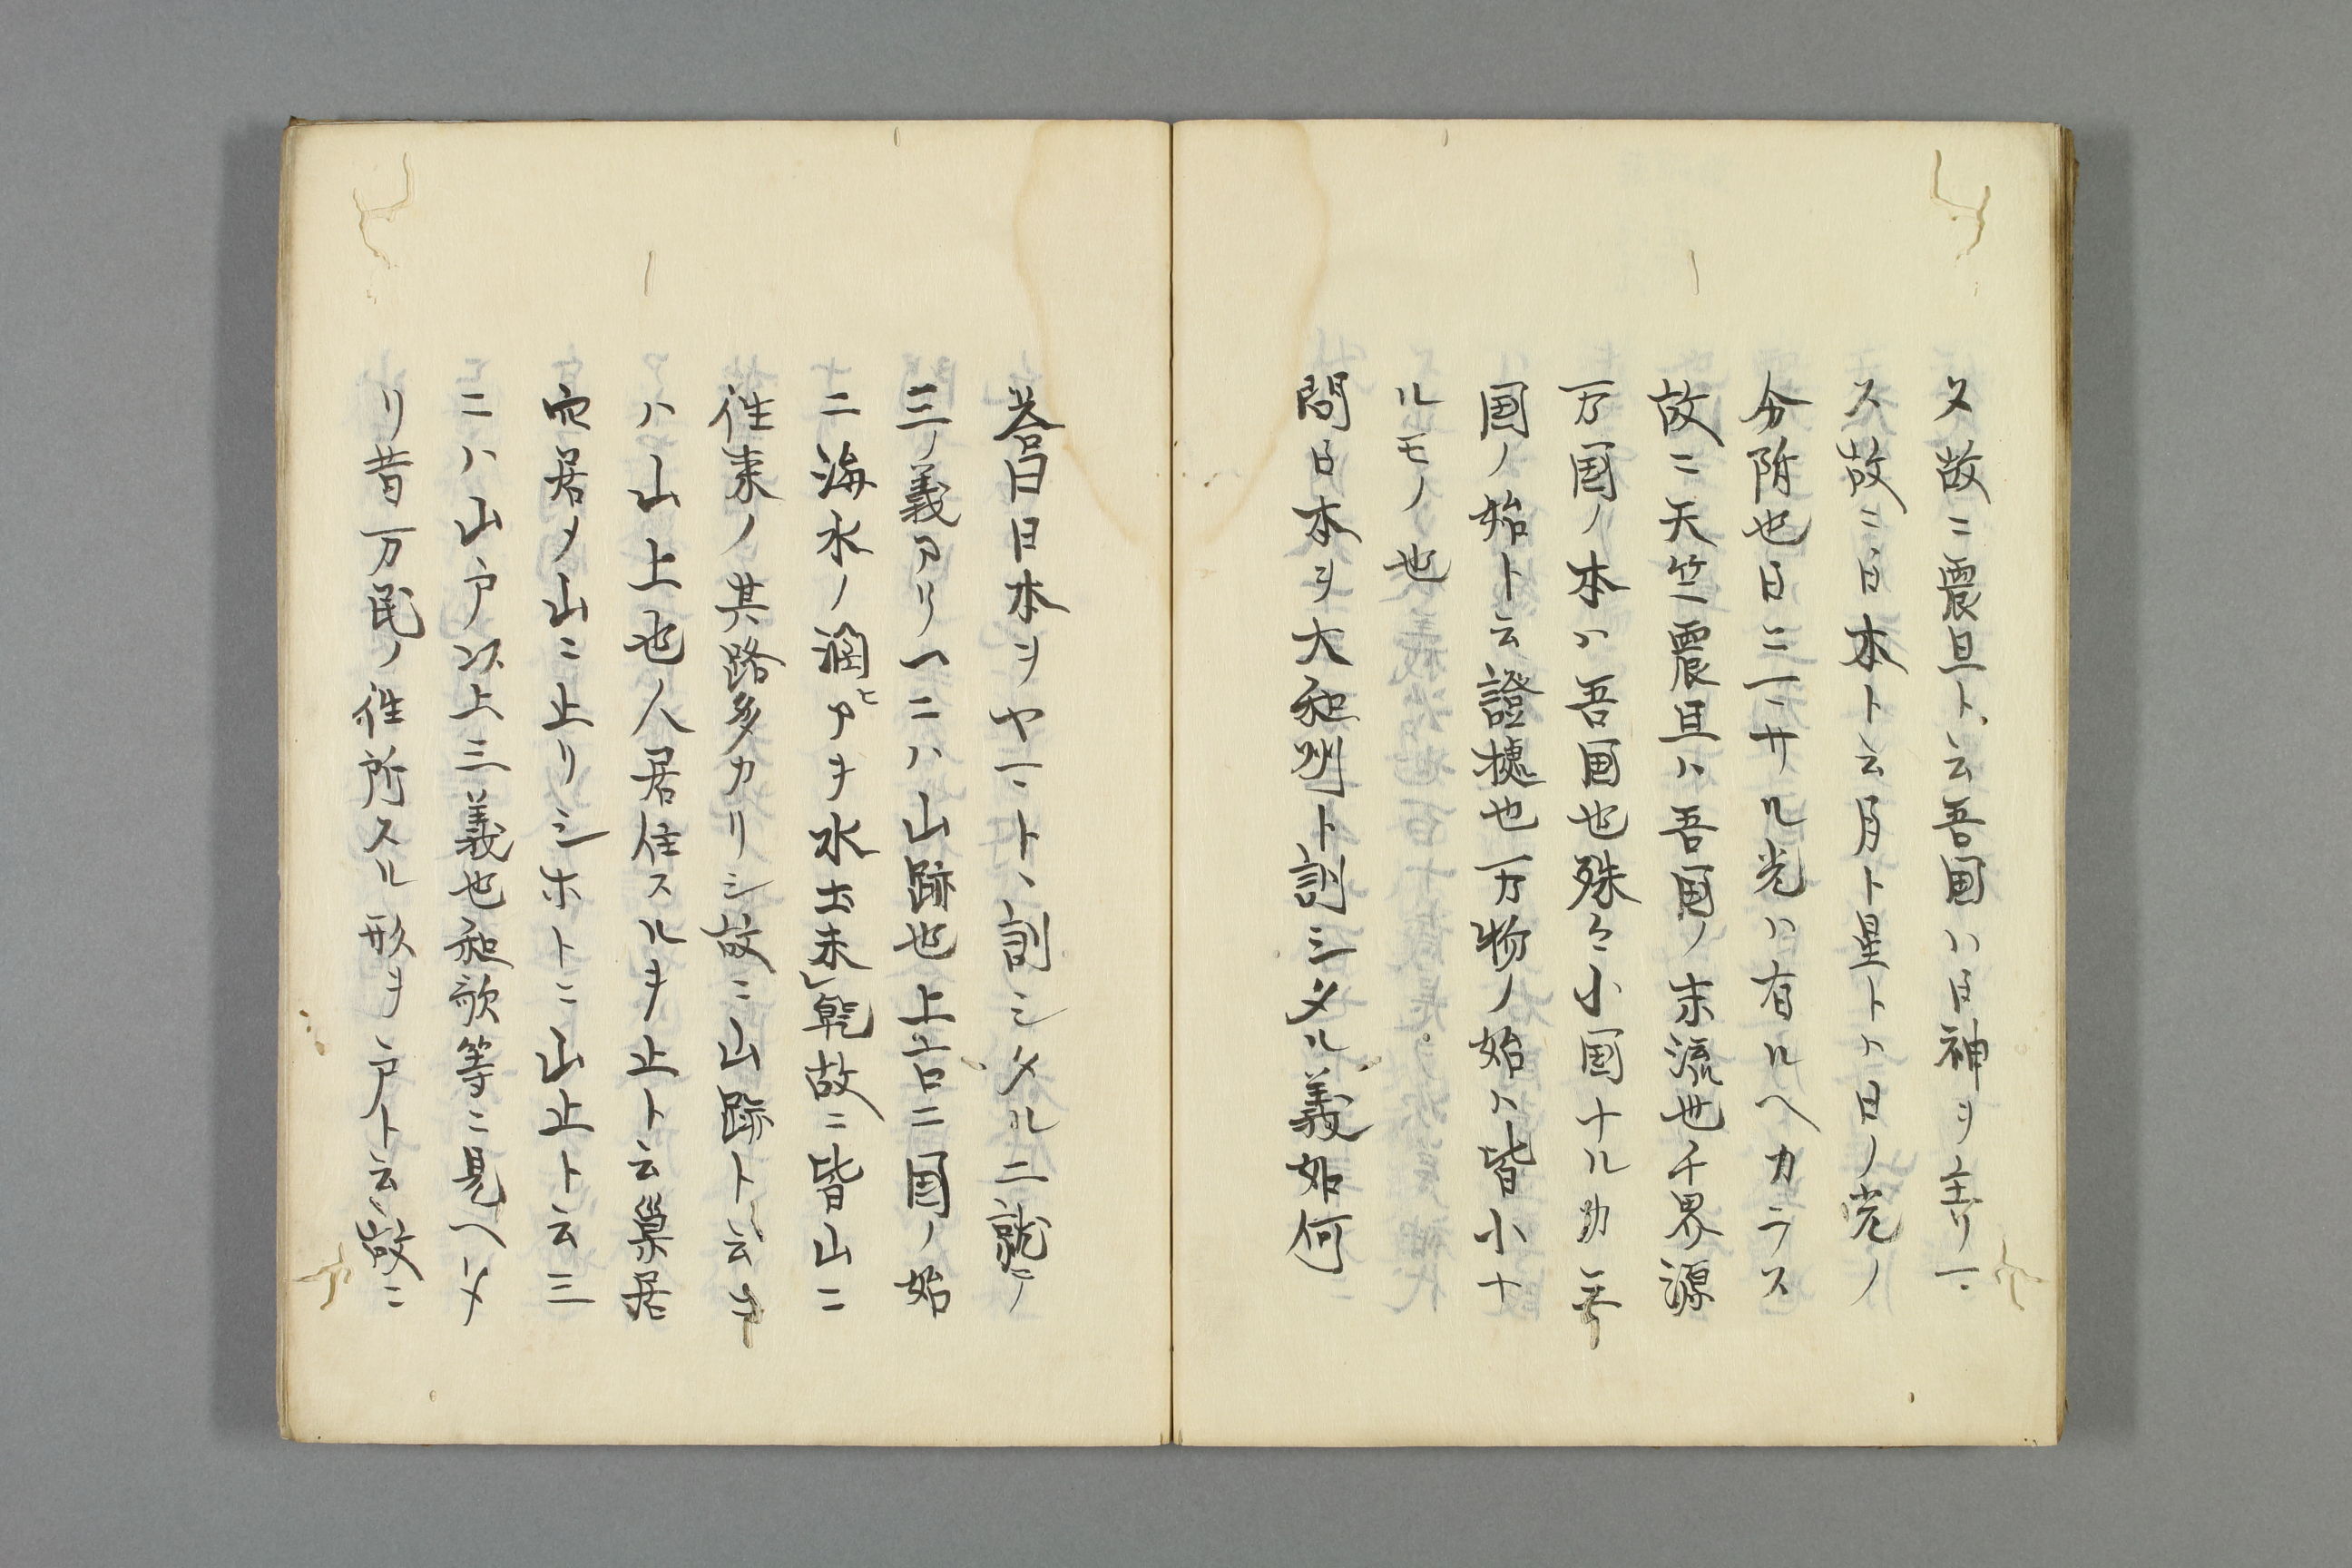 又故ニ震旦ト云吾国ハ日神ヲ主ツ
ス故ニ日本ト云月ト星トハ日ノ光ノ
分降也日ニ一サル光ハ有ルヘカラス
故ニ天竺震旦ハ吾国ノ末流也千界源
万国ノ本ハ吾国也殊ニ小国ナル事
国ノ始ト云證據也万物ノ始ハ皆小ナ
ルモノ也
問日本ヲ大和国ト訓シメル義如何
答曰日本ヲヤマトヽ訓シメルニ就ノ
三ノ義アリ一ニハ山跡也上古ニ国ノ始
ニ海水ノ溜アヒテ水土未乾故ニ皆山ニ
往来ノ其路多カリシ故ニ山跡ト云
ハ山止也人居住スルヲ止ト云無
居ノ山ニ止リシホトニ山止ト云三
ニハ山戸ハ上三義也和歌等ニ
リ昔万民ノ住所スル形ヲ戸ト云故ニ